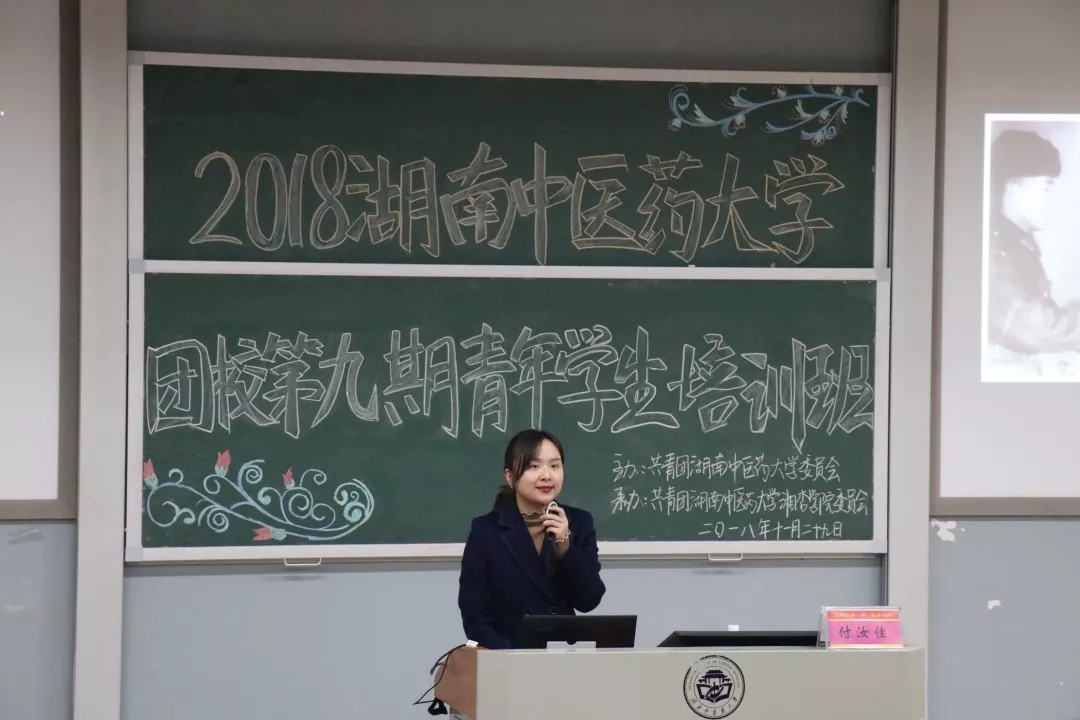 2018湖南中医药大学
团校第九期青年学生培训班
主办:共青团湖南中医药大学委员会
承办:共青团湖南中医药大学湘杏学院委员会
二〇一八年十一月二十九日
付汝佳